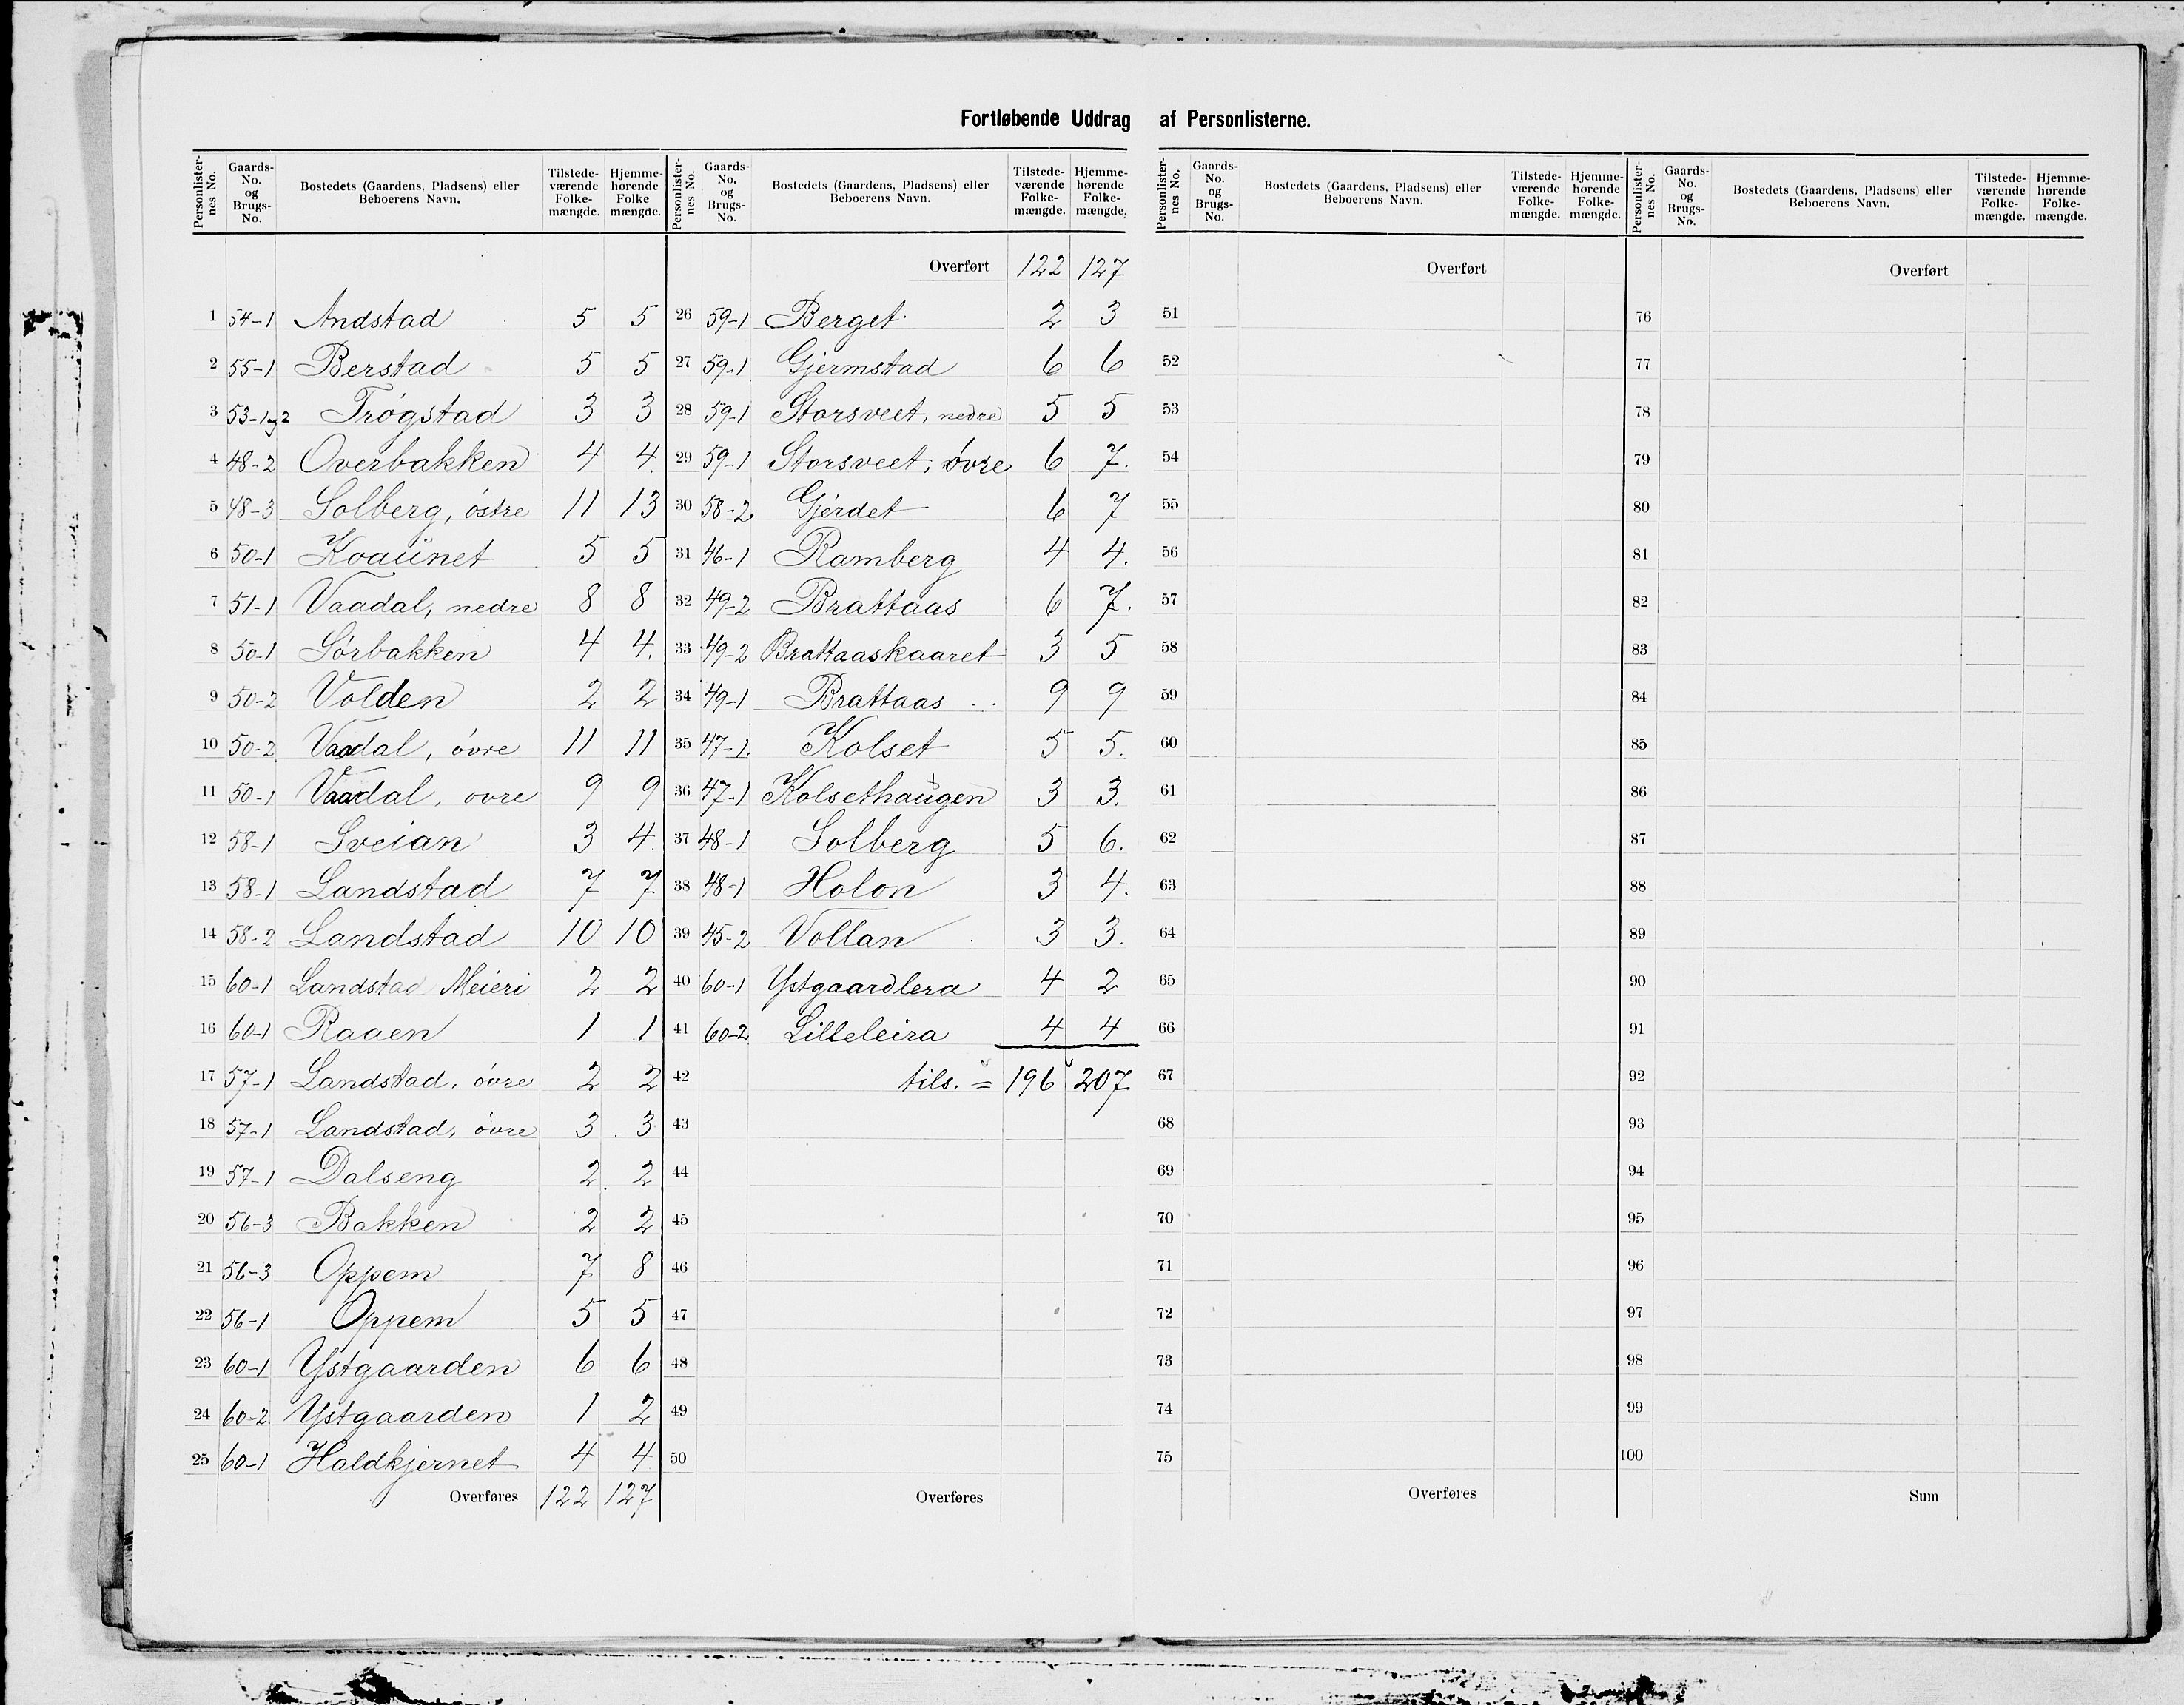 Fortløbende Uddrag af Personlisterne.
Personlister-nes No. Gaards-No. og Brugs-No. Bostedets (Gaardens, Pladsens) eller Beboerens Navn. Tilstede-værende Folke-mængde. Hjemme-hørende Folke mængde.
1 54-1 Andstad 5 5
2 55-1 Berstad 5 5
3 53-1og2 Trøgstad 3 3
4 48-2 Overbakken 4 4.
5 48-3 Solberg, østre 11 13
6 50-1 Koaunet 5 5
7 51-1 Vaadal, nedre 8 8
8 50-1 Sørbakken 4 4.
9 50-2 Volden 2 2
10 50-2 Vaadal, øvre 11 11
11 50-1 Vaadal, ovre 9 9
12 58-1 Sveian 3 4.
13 58-1 Landstad 7 7
14 58-2 Landstad 10 10
15 60-1 Landstad Meieri 2 2
16 60-1 Raaen 1 1
17 57-1 Landstad, øvre 2 2
18 57-1 Landstad, øvre 3 3
19 57-1 Dalseng 2 2
20 56-3 Bakken 2 2
21 56-3 Oppem 7 8
22 56-1 Oppem 5 5
23 60-1 Ystgaarden 6 6
24 60-2 Ystgaarden 1 2
25 60-1 Haldkjernet 4 4
Overføres 122 127
Personlister-nes No. Gaards-No. og Brugs-No. Bostedets (Gaardens, Pladsens) eller Beboerens Navn. Tilstede-værende Folke-mængde. Hjemme-hørende Folke-mængde.
Overført 122 127
26 59-1 Berget 2 3
27 59-1 Gjermstad 6 6
28 59-1 Storsveet, nedre 5 5
29 59-1 Storsveet, øvre 6 7.
30 58-2 Gjerdet 6 7
31 46-1 Ramberg 4 4.
32 49-2 Brattaas 6 7.
33 49-2 Brattaaskaaret 3 5
34 49-1 Brattaas 9 9
35 47-1 Kolset 5 5.
36 47-1 Kolsethaugen 3 3.
37 48-1 Solberg 5 6.
38 48-1 Holon 3 4.
39 45-2 Vollan 3 3.
40 60-1 Ystgaardlera 4 2
41 60-2 Lilleleira 4 4
42 tils. = 196 207
43
44
45
46
47
48
49
50
Overføres
Personlister-nes No. Gaards-No. og Brugs-No. Bostedets (Gaardens, Pladsens) eller Beboerens Navn. Tilstede-værende Folke-mængde. Hjemme-hørende Folke-mængde.
Overført
51
52
53
54
55
56
57
58
59
60
61
62
63
64
65
66
67
68
69
70
71
72
73
74
75
Overføres
Personlister-nes No. Gaards-No. og Brugs-No. Bostedets (Gaardens, Pladsens) eller Beboerens Navn. Tilstede-værende Folke-mængde. Hjemme-hørende Folke-mængde.
Overført
76
77
78
79
80
81
82
83
84
85
86
87
88
89
90
91
92
93
94
95
96
97
98
99
100
Sum